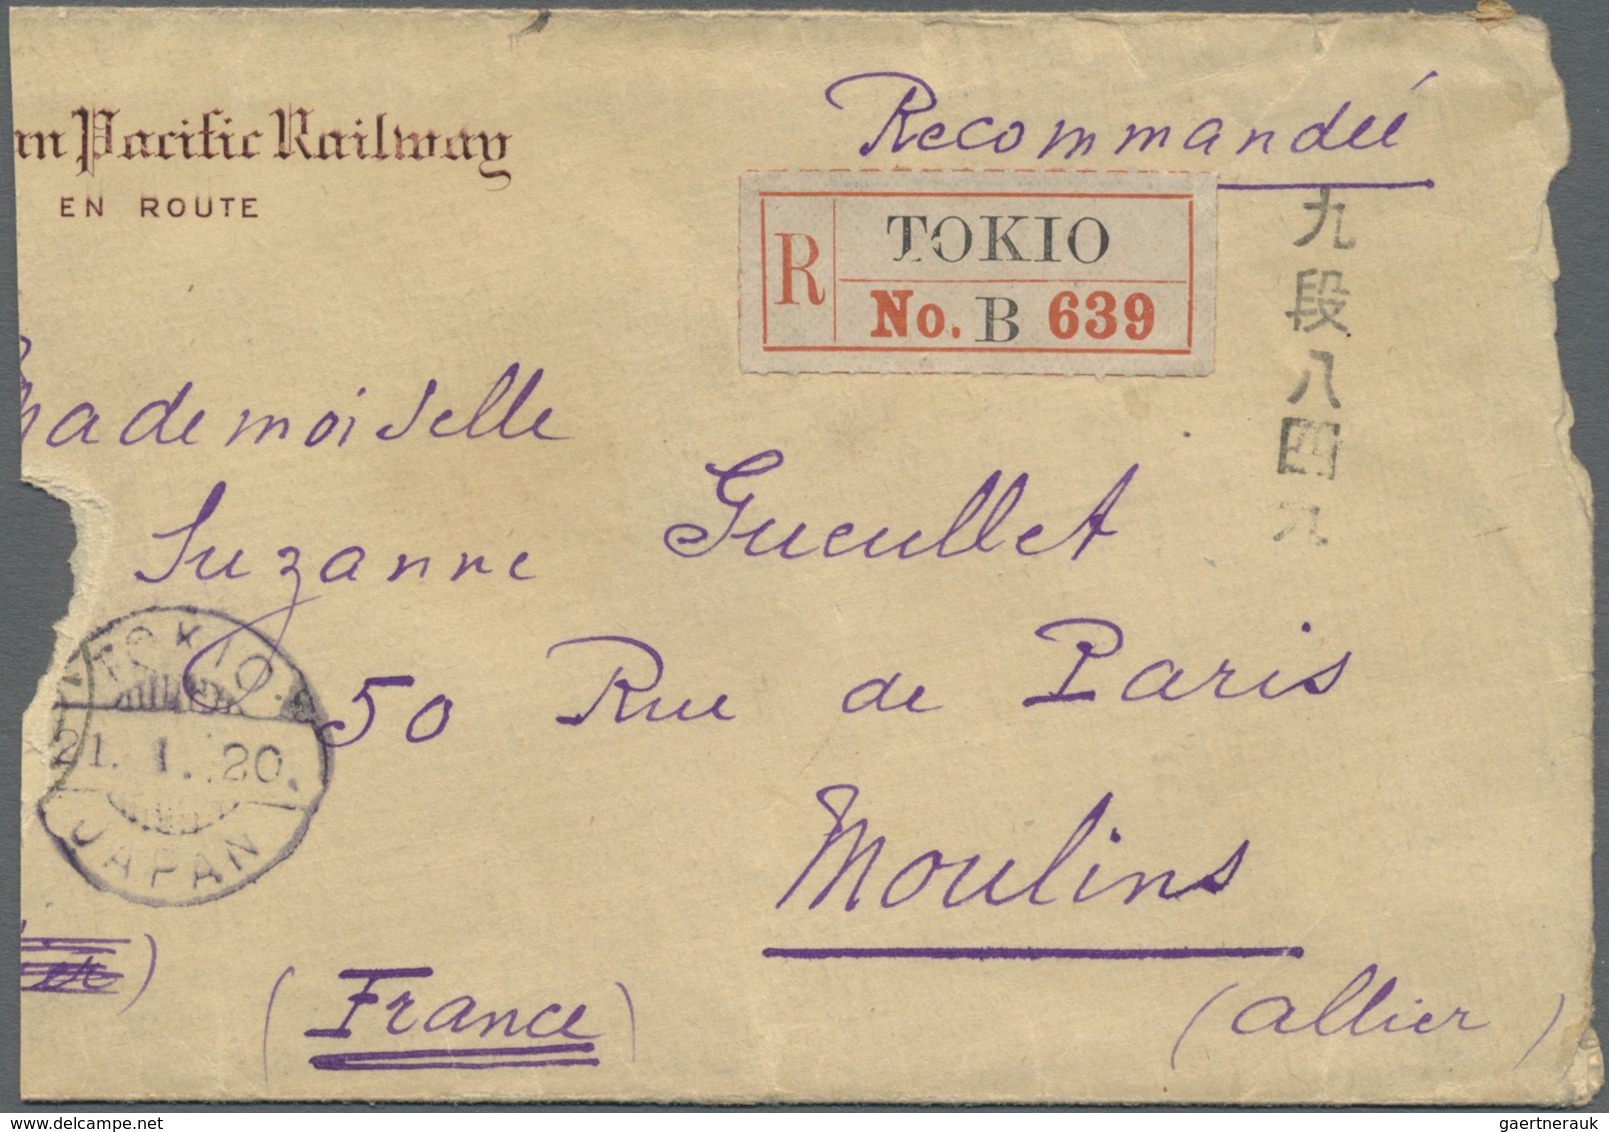 Pacific Railway
EN ROUTE
Recommandée
R
TOKIO
No. B 639
九段八四九
Mademoiselle
Suzanne Gueullet
50 Rue de Paris
Moulins
(Allier)
(France)
TOKIO
21. 1. 20.
JAPAN
gaertnerauk @ delcampe.net